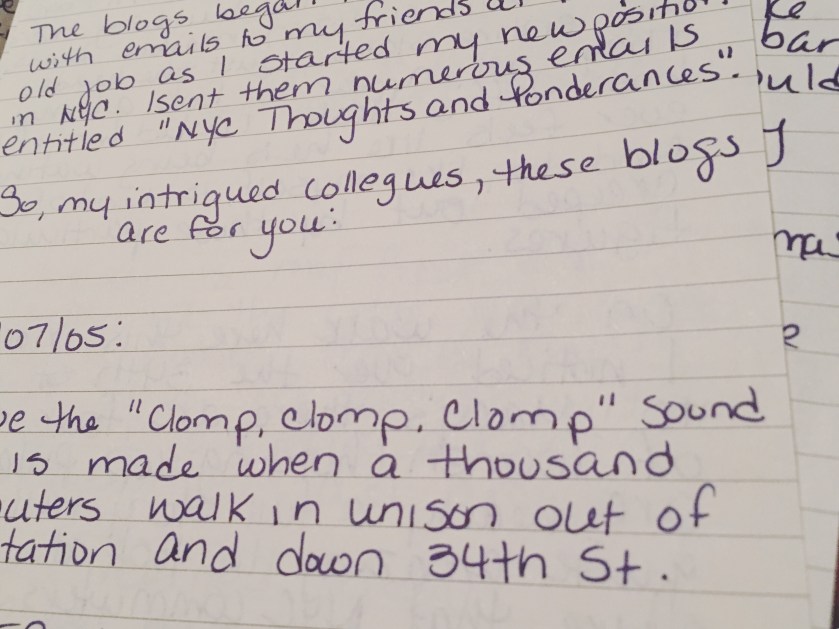 The blogs began
with emails to my friends
old job as I started my new position
in NYC. I sent them numerous emails
entitled "NYC Thoughts and Ponderances".
So, my intrigued collegues, these blogs
are for you:
07/05:
the "Clomp, Clomp, Clomp" sound
is made when a thousand
uters walk in unison out of
tation and down 34th St.
bar